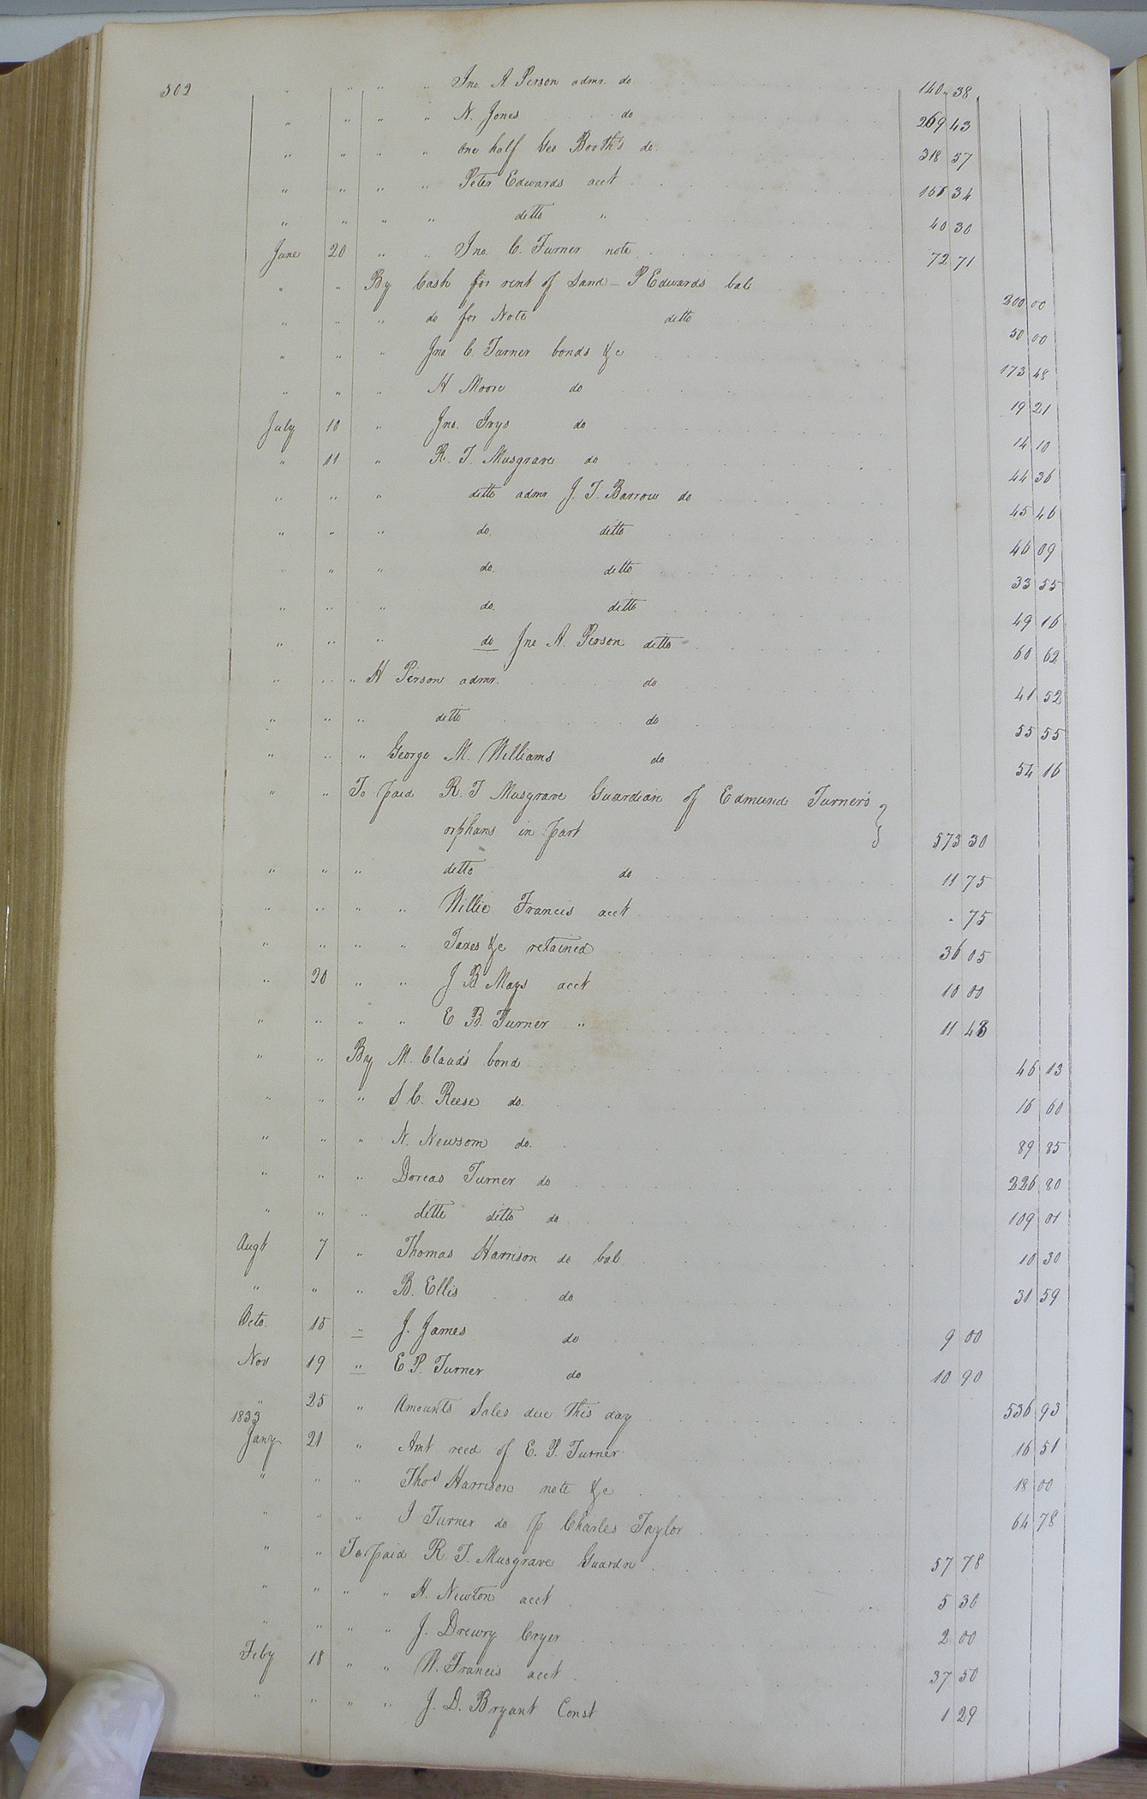 502 " " " " Jno. A Person admr. do 140 38
" " " " N. Jones do 269 43
" " " " one half Geo Booth's do 318 57
" " " " Peter Edwards acct 34
" " " " ditto " 40 30
June 20 " " Jno. C. Turner note 72 71
" " By Cash for rent of Land - P Edwards bale 300 00
" " " do for Note ditto 50 00
" " " Jno C. Turner bonds &c 173 48
" " " H Moore do 19 21
July 10 " Jno. Ivys do 14 10
" 11 " R. T. Musgrave do 44 36
" " " ditto admr J. T. Barrow do 45 46
" " " do. ditto 46 09
" " " do. ditto 33 55
" " " do. ditto 49 16
" " " do Jno A. Person ditto 60 62
" " " H Person admr. do 41 52
" " " ditto do 55 55
" " " George M. Williams do 54 16
" " To paid R. T Musgrave Guardian of Edmund Turner's }
orphans in part 573 30
" " " ditto do 11 75
" " " " Willie Francis acct - 75
" " " " Taxes &c retained 36 05
" 20 " " J B Mays acct 10 00
" " " " E B. Turner " 11 48
" " By M. Claud's bond 46 13
" " " S C. Reese do. 16 60
" " " N. Newsom do. 89 85
" " " Dorcas Turner do 226 80
" " " ditto ditto do 109 01
Augt 7 " Thomas Harrison do bal 10 30
" " " B. Ellis do 31 59
Octo. 15 " J. James do 9 00
Nov 19 " E P. Turner do 10 90
" 25 " Amounts Sales due this day 536 93
1833
Jany 21 " Amt recd of E. P. Turner 16 51
" " " Thos Harrison note &c 18 00
" " " J Turner do p Charles Taylor 64 78
" " To paid R. T. Musgrave Guardn 57 78
" " " " H. Newton acct 5 30
" " " " J. Drewry Cryer 2 00
Feby 18 " " W. Francis acct 37 50
" " " " J. D. Bryant Const 1 29